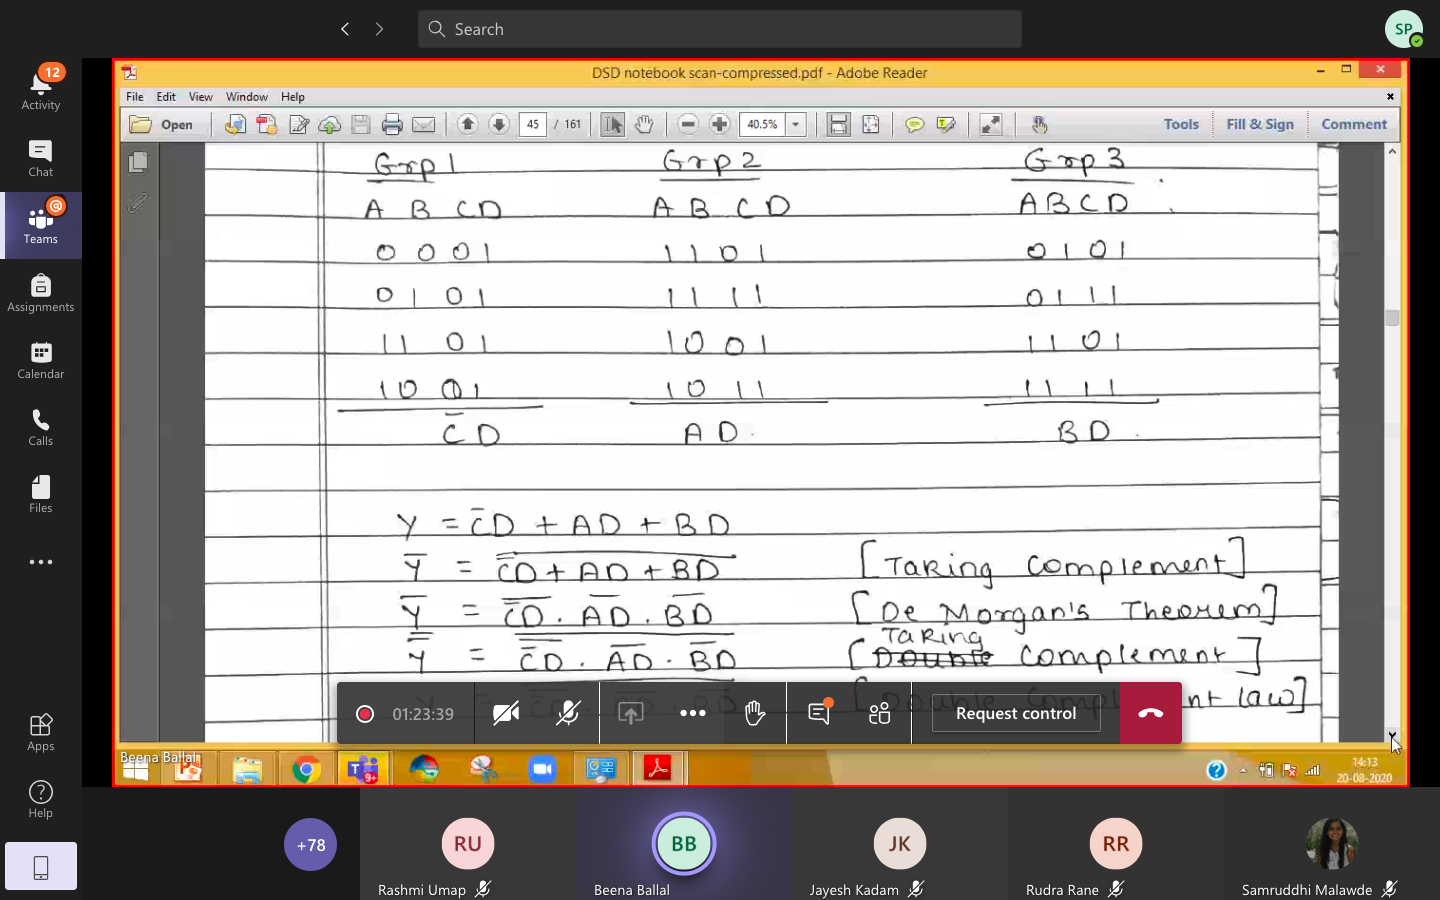 Search
SP
12
Activity
Chat
Teams
Assignments
Calendar
Calls
Files
Apps
Help
DSD notebook scan-compressed.pdf - Adobe Reader
File Edit View Window Help
Open 45 / 161 40.5% Tools Fill & Sign Comment
Grp 1 Grp 2 Grp 3
A B C D A B C D A B C D
0 0 0 1 1 1 0 1 0 1 0 1
0 1 0 1 1 1 1 1 0 1 1 1
1 1 0 1 1 0 0 1 1 1 0 1
1 0 0 1 1 0 1 1 1 1 1 1
C̅D AD BD
Y = C̅D + AD + BD
Y̅ = \overline{C̅D + AD + BD} [Taking complement]
Y̅ = \overline{C̅D} . \overline{AD} . \overline{BD} [De Morgan's Theorem]
\overline{Y̅} = \overline{\overline{C̅D} . \overline{AD} . \overline{BD}} [Taking complement]
[Double Complement law]
01:23:39 Request control
Beena Ballal
9+
14:13
20-08-2020
+78 RU BB JK RR
Rashmi Umap Beena Ballal Jayesh Kadam Rudra Rane Samruddhi Malawde